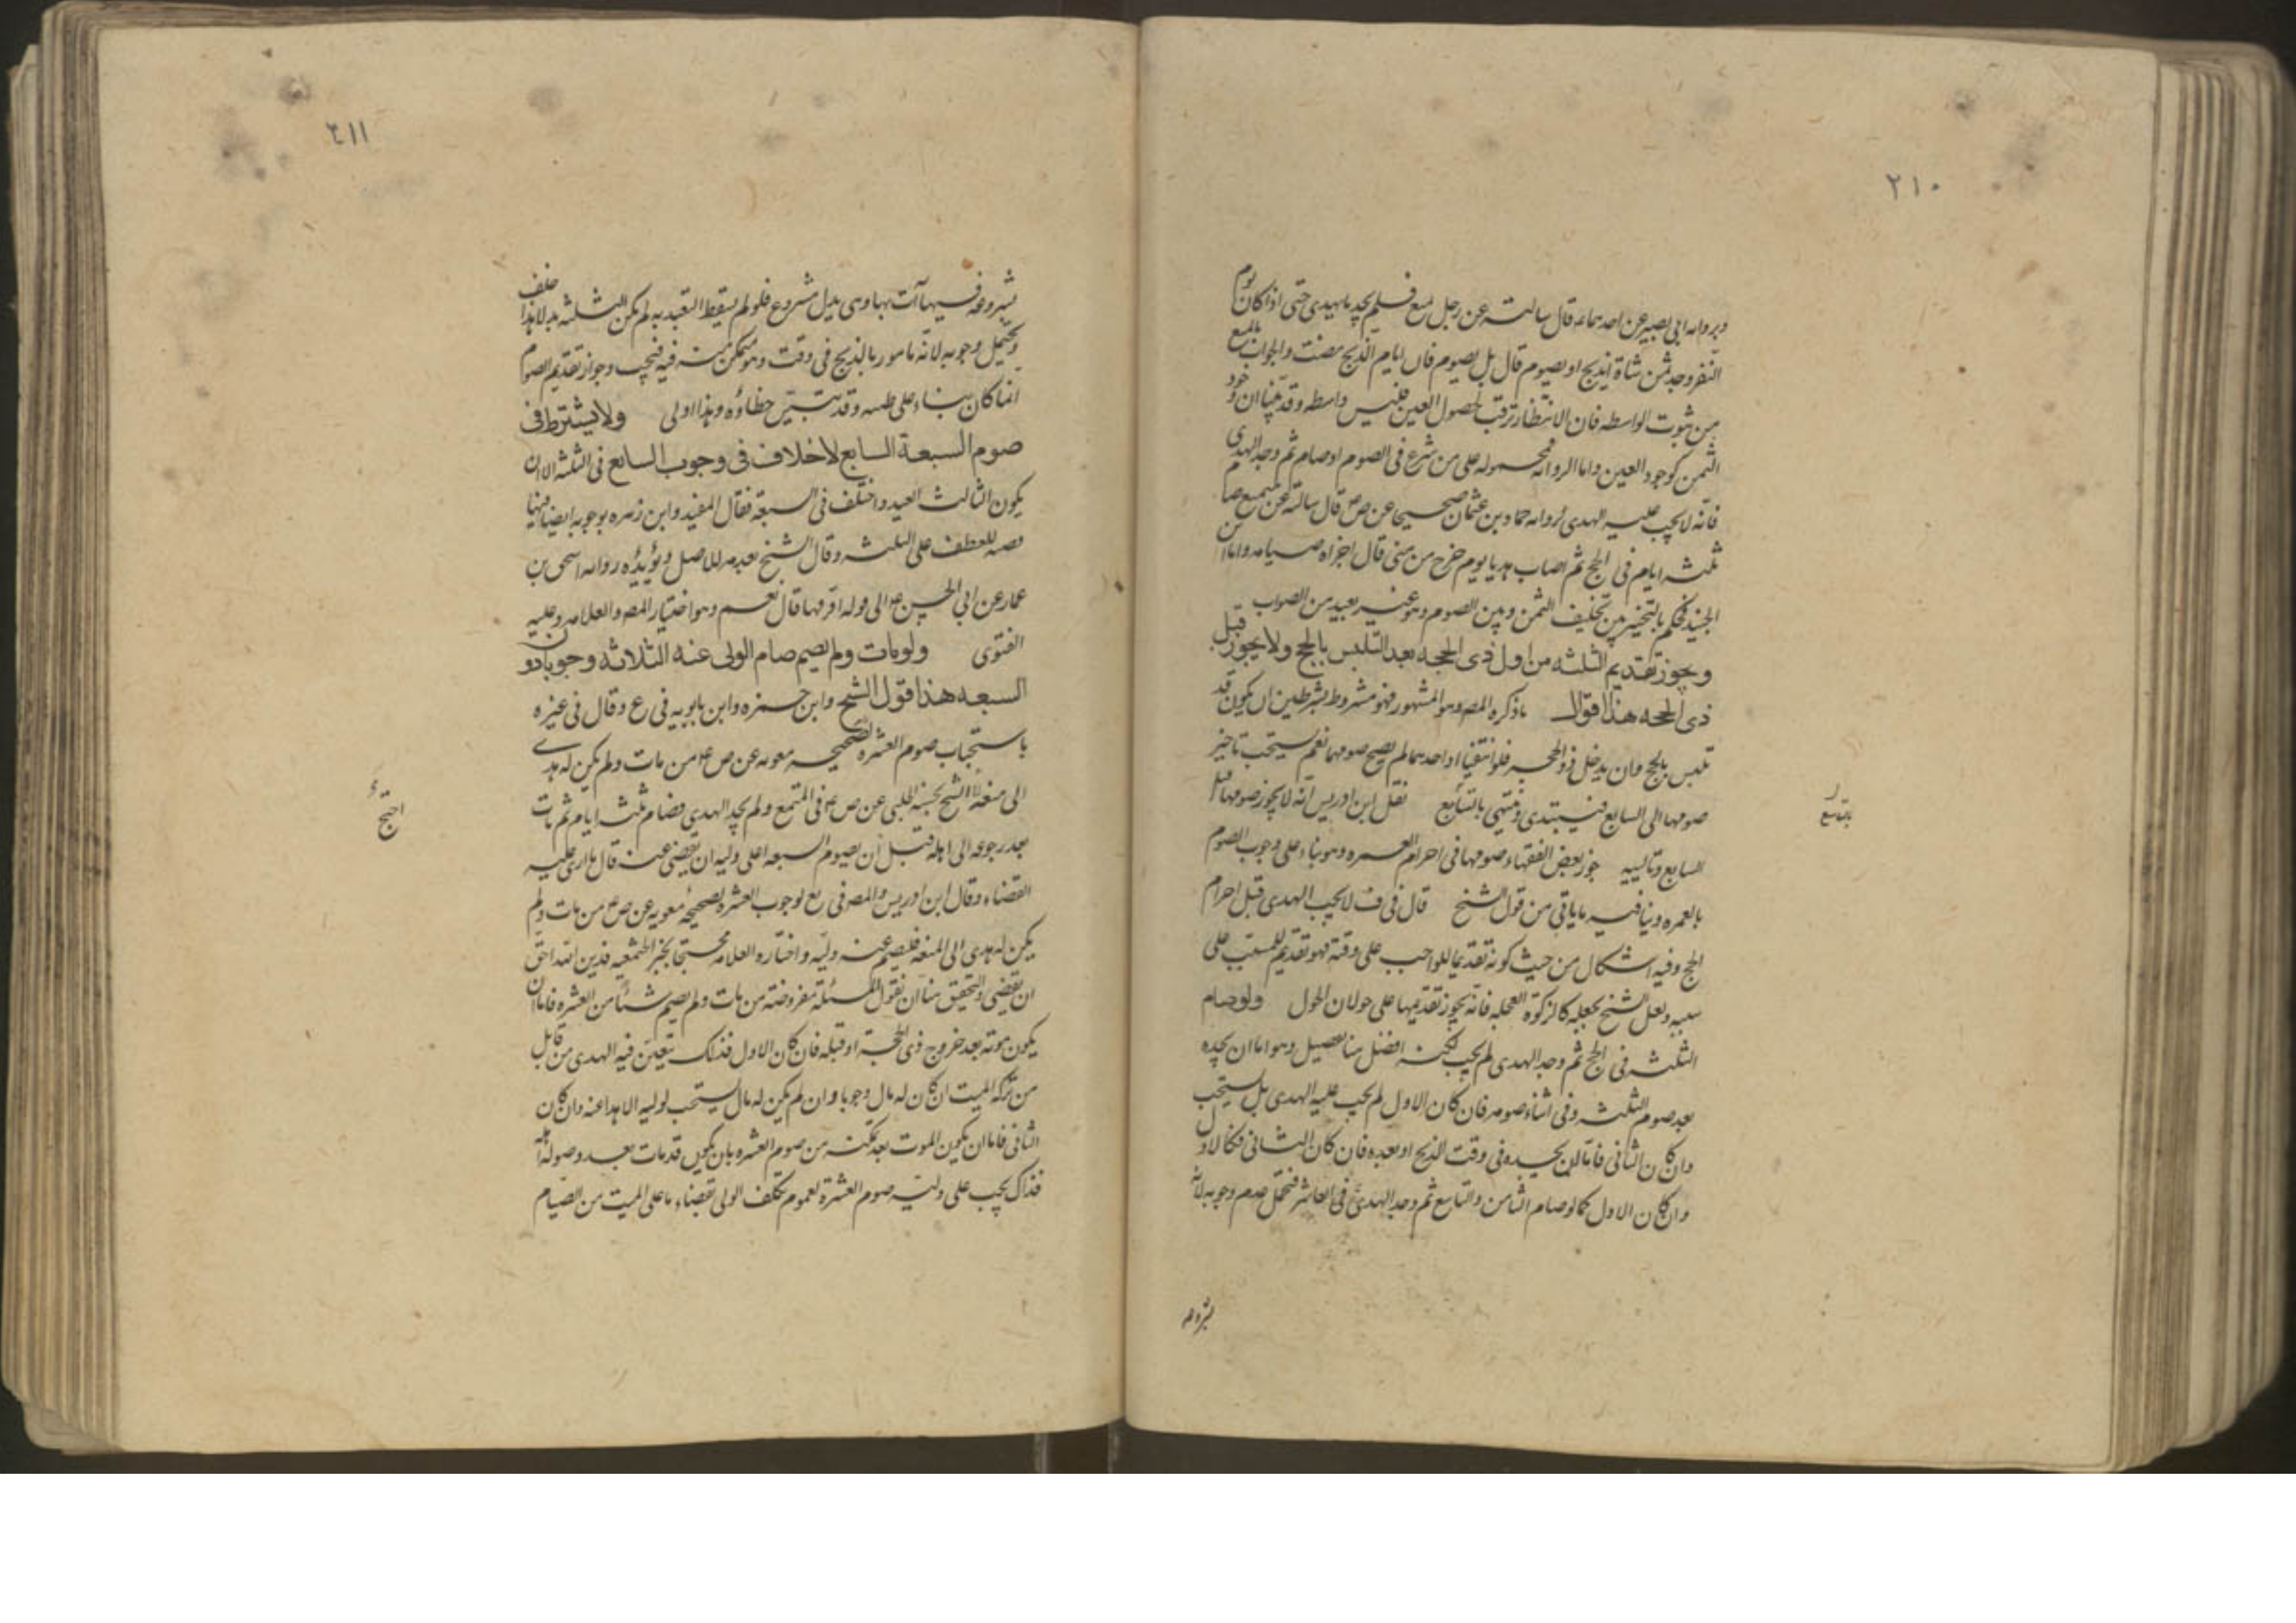 ٢١٠
وبرواىه ابى بصير عن احدهماء قال سالته عن رجل تمتع فلم يجد ما يهدى حتى اذا كان يوم
النفر وجد ثمن شاة ايذبح او يصوم قال بل يصوم فان ايام الذبح مضت والجواب بالمنع
من ثبوت الواسطه فان الانتظار ترقب لحصول العين فليس واسطه وقد بينا ان وجود
الثمن كوجود العين واما الروايه فمحموله على من شرع فى الصوم او صام ثم وجد الهدى
فانه لا يجب عليه الهدى لرواىه حماد بن عثمان صحيحا عن ص ع قال سالته عن متمتع صام
ثلثه ايام فى الحج ثم اصاب هديا يوم خرج من منى قال اجزاه صيامه واما ابن
الجنيد فحكم بالتخيير بين تخليف الثمن وبين الصوم وهو غير بعيد من الصواب
ويجوز تقديم الثلثه من اول ذى الحجه بعد التلبس بالحج ولا يجوز قبل
ذى الحجه هذا اقوال ما ذكره المص وهو المشهور فهو مشروط بشرطين ان يكون قد
تلبس بالحج وان يدخل ذو الحجه فلو انتفيا او احدهما لم يصح صومها نعم يستحب تاخير
صومها الى السابع فيبتدى وينتهى بالتاسع نقل ابن ادريس انه لا يجوز صومها قبل
السابع وتالييه جوز بعض الفقهاء صومها فى احرام العمره وهو بناء على وجوب الصوم
بالعمره وينافيه ما ياتى من قول الشيخ قال فى ف لا يجب الهدى قبل احرام
الحج وفيه اشكال من حيث كونه تقديما للواجب على وقته فهو تقديم للمسبب على
سببه ولعل الشيخ يجعله كالزكوة المعجله فانه يجوز تقديمها على حولان الحول ولو صام
الثلثه فى الحج ثم وجد الهدى لم يجب لكنه افضل هنا تفصيل وهو اما ان يجده
بعد صوم الثلثه وفى اثناء صومه فان كان الاول لم يجب عليه الهدى بل يستحب
وان كان الثانى فاما ان يجده فى وقت الذبح او بعده فان كان الثانى فكالاول
وان كان الاول كما لو صام الثامن والتاسع ثم وجد الهدى فى العاشر فيحتمل عدم وجوبه لانه
بالتاسع
بشروعه
٢١١
بشروعه فيها آت بها وهى بدل مشروع فلو لم يسقط التعبد به لم يكن الثلثه بدلا هذا خلف
ويحتمل وجوبه لانه مامور بالذبح فى وقت وهو متمكن منه فيه فيجب وجواز تقديم الصوم
انما كان بناء على ظنه وقد تبين خطاؤه وهذا اولى ولا يشترط فى
صوم السبعة التتابع لا خلاف فى وجوب التتابع فى الثلثه الا ان
يكون الثالث العيد واختلف فى السبعة فقال المفيد وابن زهره بوجوبه ايضا فيها
قضيه للعطف على الثلثه وقال الشيخ بعدمه للاصل ويؤيده روايه اسحق بن
عمار عن ابى الحسن ع الى قوله افرقها قال نعم وهو اختيار المص والعلامه وعليه
الفتوى ولو مات ولم يصم صام الولى عنه الثلاثه وجوبا دون
السبعه هذا قول الشيخ وابن حمزه وابن بابويه فى ع وقال فى غيره
باستحباب صوم العشره لصحيحه معويه عن ص ع من مات ولم يكن له هدى
الى متعه الشيخ بحسنه الحلبى عن ص ع فى المتمتع ولم يجد الهدى فصام ثلثه ايام ثم مات
بعد رجوعه الى اهله قبل ان يصوم السبعه اعلى وليه ان يقضى عنه قال ما ارى عليه
القضاء وقال ابن ادريس والمص فى يع لوجوب العشره لصحيحه معويه عن ص ع من مات ولم
يكن له هدى الى المتعه فليصم عنه وليه واختاره العلامه محتجا بخبر الخثعميه فدين الله احق
ان يقضى والتحقيق هنا ان نقول المسئلة مفروضة من مات ولم يصم شيئا من العشره فاما ان
يكون موته بعد خروج ذى الحجة او قبله فان كان الاول فذلك يتعين فيه الهدى من قابل
من تركه الميت ان كان له مال وجوبا وان لم يكن له مال يستحب لوليه الاهدا عنه وان كان
الثانى فاما ان يكون الموت بعد تمكنه من صوم العشره بان يكون قد مات بعد وصوله اهله
فذاك يجب على وليه صوم العشرة لعموم تكلف الولى بقضاء ما على الميت من الصيام
احتج